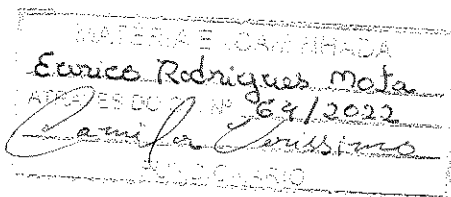 MATÉRIA ENCAMINHADA
Eurico Rodrigues Mota
ATRAVÉS DO Nº 64/2022
Camila Verissimo
FUNCIONÁRIO